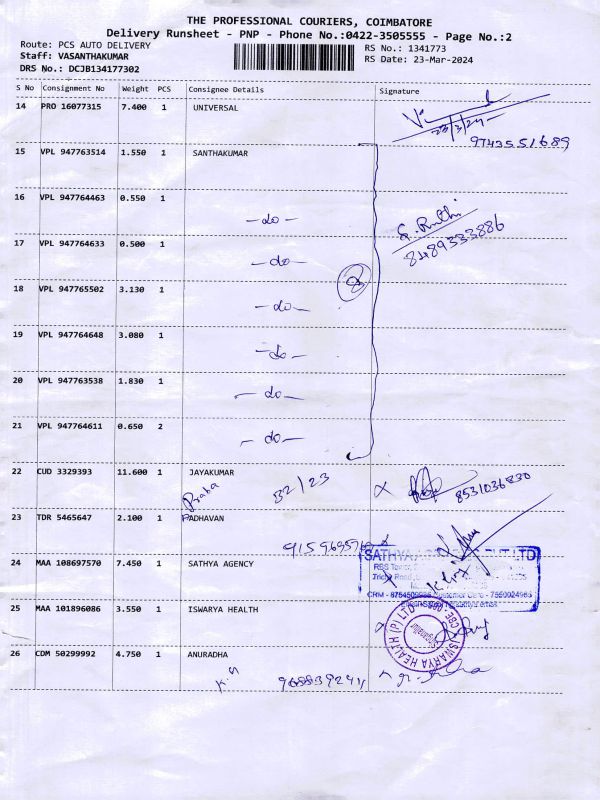 THE PROFESSIONAL COURIERS, COIMBATORE
Delivery Runsheet - PNP - Phone No.:0422-3505555 - Page No.:2
Route: PCS AUTO DELIVERY
RS No.: 1341773
Staff: VASANTHAKUMAR
RS Date: 23-Mar-2024
DRS No.: DCJB134177302
S No Consignment No Weight PCS Consignee Details Signature
14 PRO 16077315 7.400 1 UNIVERSAL
23/3/24
9743551689
15 VPL 947763514 1.550 1 SANTHAKUMAR
16 VPL 947764463 0.550 1
-do-
8489333886
17 VPL 947764633 0.500 1
-do-
8
18 VPL 947765502 3.130 1
-do-
19 VPL 947764648 3.080 1
-do-
20 VPL 947763538 1.830 1
-do-
21 VPL 947764611 0.650 2
-do-
22 CUD 3329393 11.600 1 JAYAKUMAR
Praba B2/23 8531036830
23 TDR 5465647 2.100 1 PADHAVAN
SATHYA PVT LTD
24 MAA 108697570 7.450 1 SATHYA AGENCY
25 MAA 101896086 3.550 1 ISWARYA HEALTH
ISWARYA HEALTH (P) LTD
26 CDM 50299992 4.750 1 ANURADHA